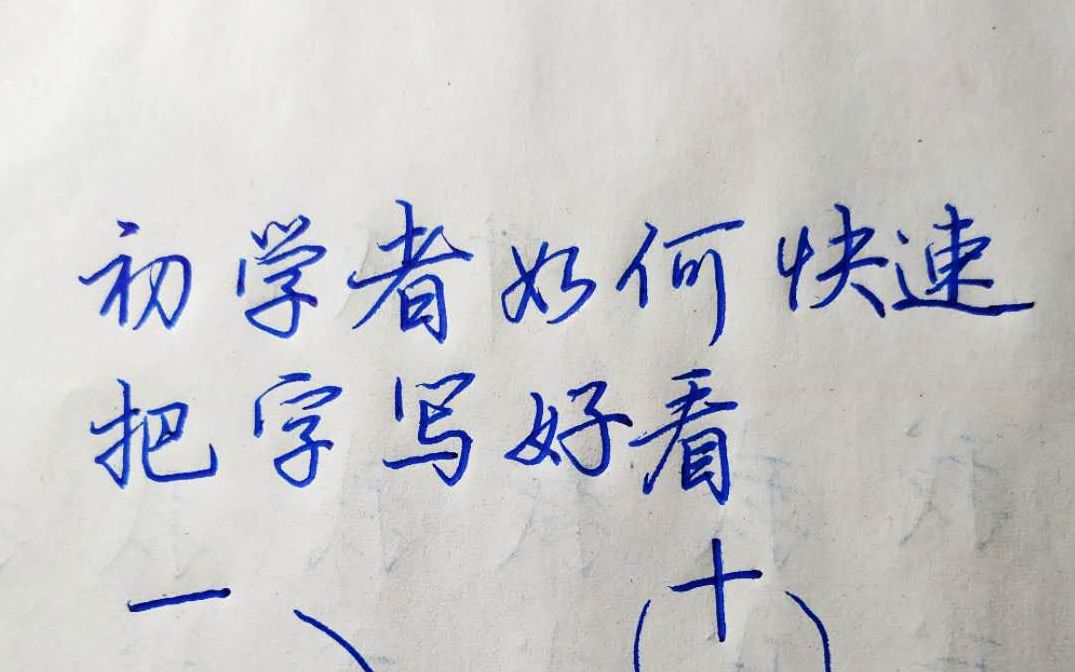 初学者如何快速
把字写好看
一 十